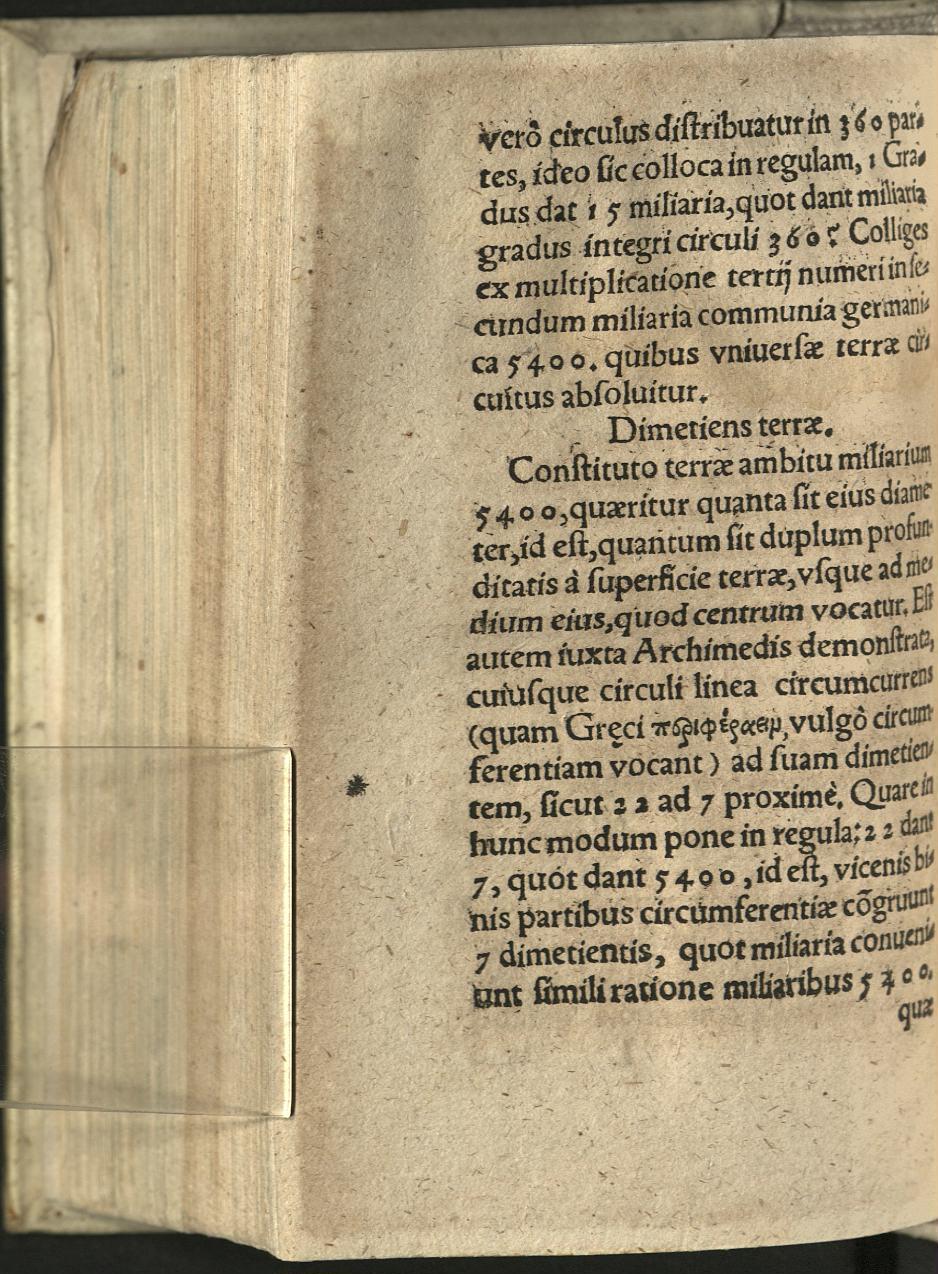 verò circulus diſtribuatur in 360 par⸗
tes, ideo ſic colloca in regulam, 1 Gra⸗
dus dat 15 miliaria, quot dant miliaria
gradus integri circuli 360? Colliges
ex multiplicatione tertij numeri in ſe⸗
cundum miliaria communia germani⸗
ca 5400. quibus vniuerſæ terræ cir⸗
cuitus abſoluitur.
Dimetiens terræ.
Conſtituto terræ ambitu miliarium
5400, quæritur quanta ſit eius diame⸗
ter, id eſt, quantum ſit duplum profun⸗
ditatis à ſuperficie terræ, vſque ad me⸗
dium eius, quod centrum vocatur. Eſt
autem iuxta Archimedis demonſtrata,
cuiuſque circuli linea circumcurrens
(quam Gręci περιφέραειμ, vulgò circum⸗
ferentiam vocant) ad ſuam dimetien⸗
tem, ſicut 22 ad 7 proximè. Quare in
hunc modum pone in regula: 22 dant
7, quot dant 5400, id eſt, vicenis bi⸗
nis partibus circumferentiæ cõgruunt
7 dimetientis, quot miliaria conueni⸗
unt ſimili ratione miliaribus 5400.
quæ